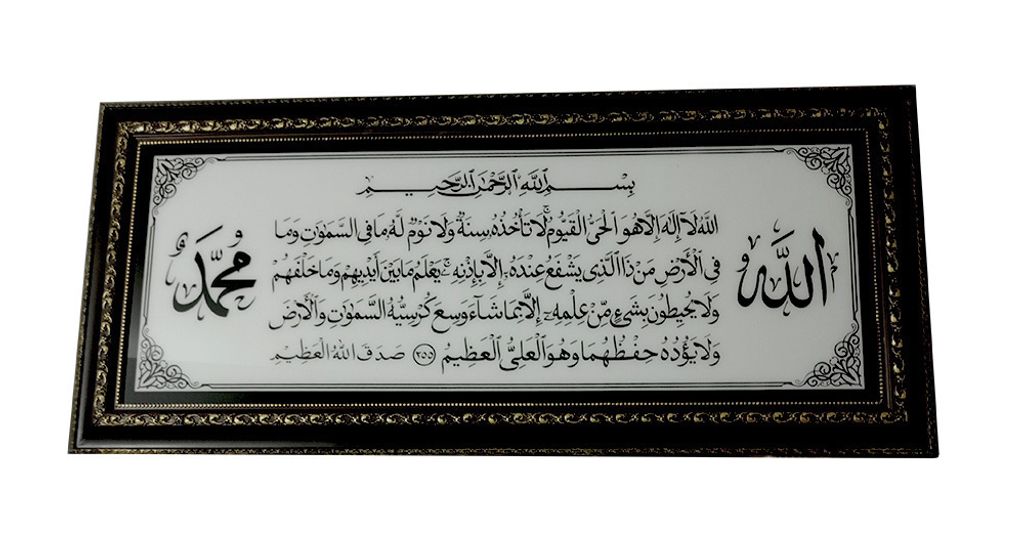 بِسْمِ اللَّهِ الرَّحْمٰنِ الرَّحِيمِ
اللَّهُ لَا إِلٰهَ إِلَّا هُوَ الْحَيُّ الْقَيُّومُ ۚ لَا تَأْخُذُهُ سِنَةٌ وَلَا نَوْمٌ ۚ لَهُ مَا فِي السَّمٰوَاتِ وَمَا
فِي الْأَرْضِ ۗ مَنْ ذَا الَّذِي يَشْفَعُ عِنْدَهُ إِلَّا بِإِذْنِهِ ۚ يَعْلَمُ مَا بَيْنَ أَيْدِيهِمْ وَمَا خَلْفَهُمْ
وَلَا يُحِيطُونَ بِشَيْءٍ مِّنْ عِلْمِهِ إِلَّا بِمَا شَاءَ ۚ وَسِعَ كُرْسِيُّهُ السَّمٰوَاتِ وَالْأَرْضَ
وَلَا يَؤُدُهُ حِفْظُهُمَا وَهُوَ الْعَلِيُّ الْعَظِيمُ ٢٥٥ صَدَقَ اللَّهُ الْعَظِيمُ
اللَّه
مُحَمَّد